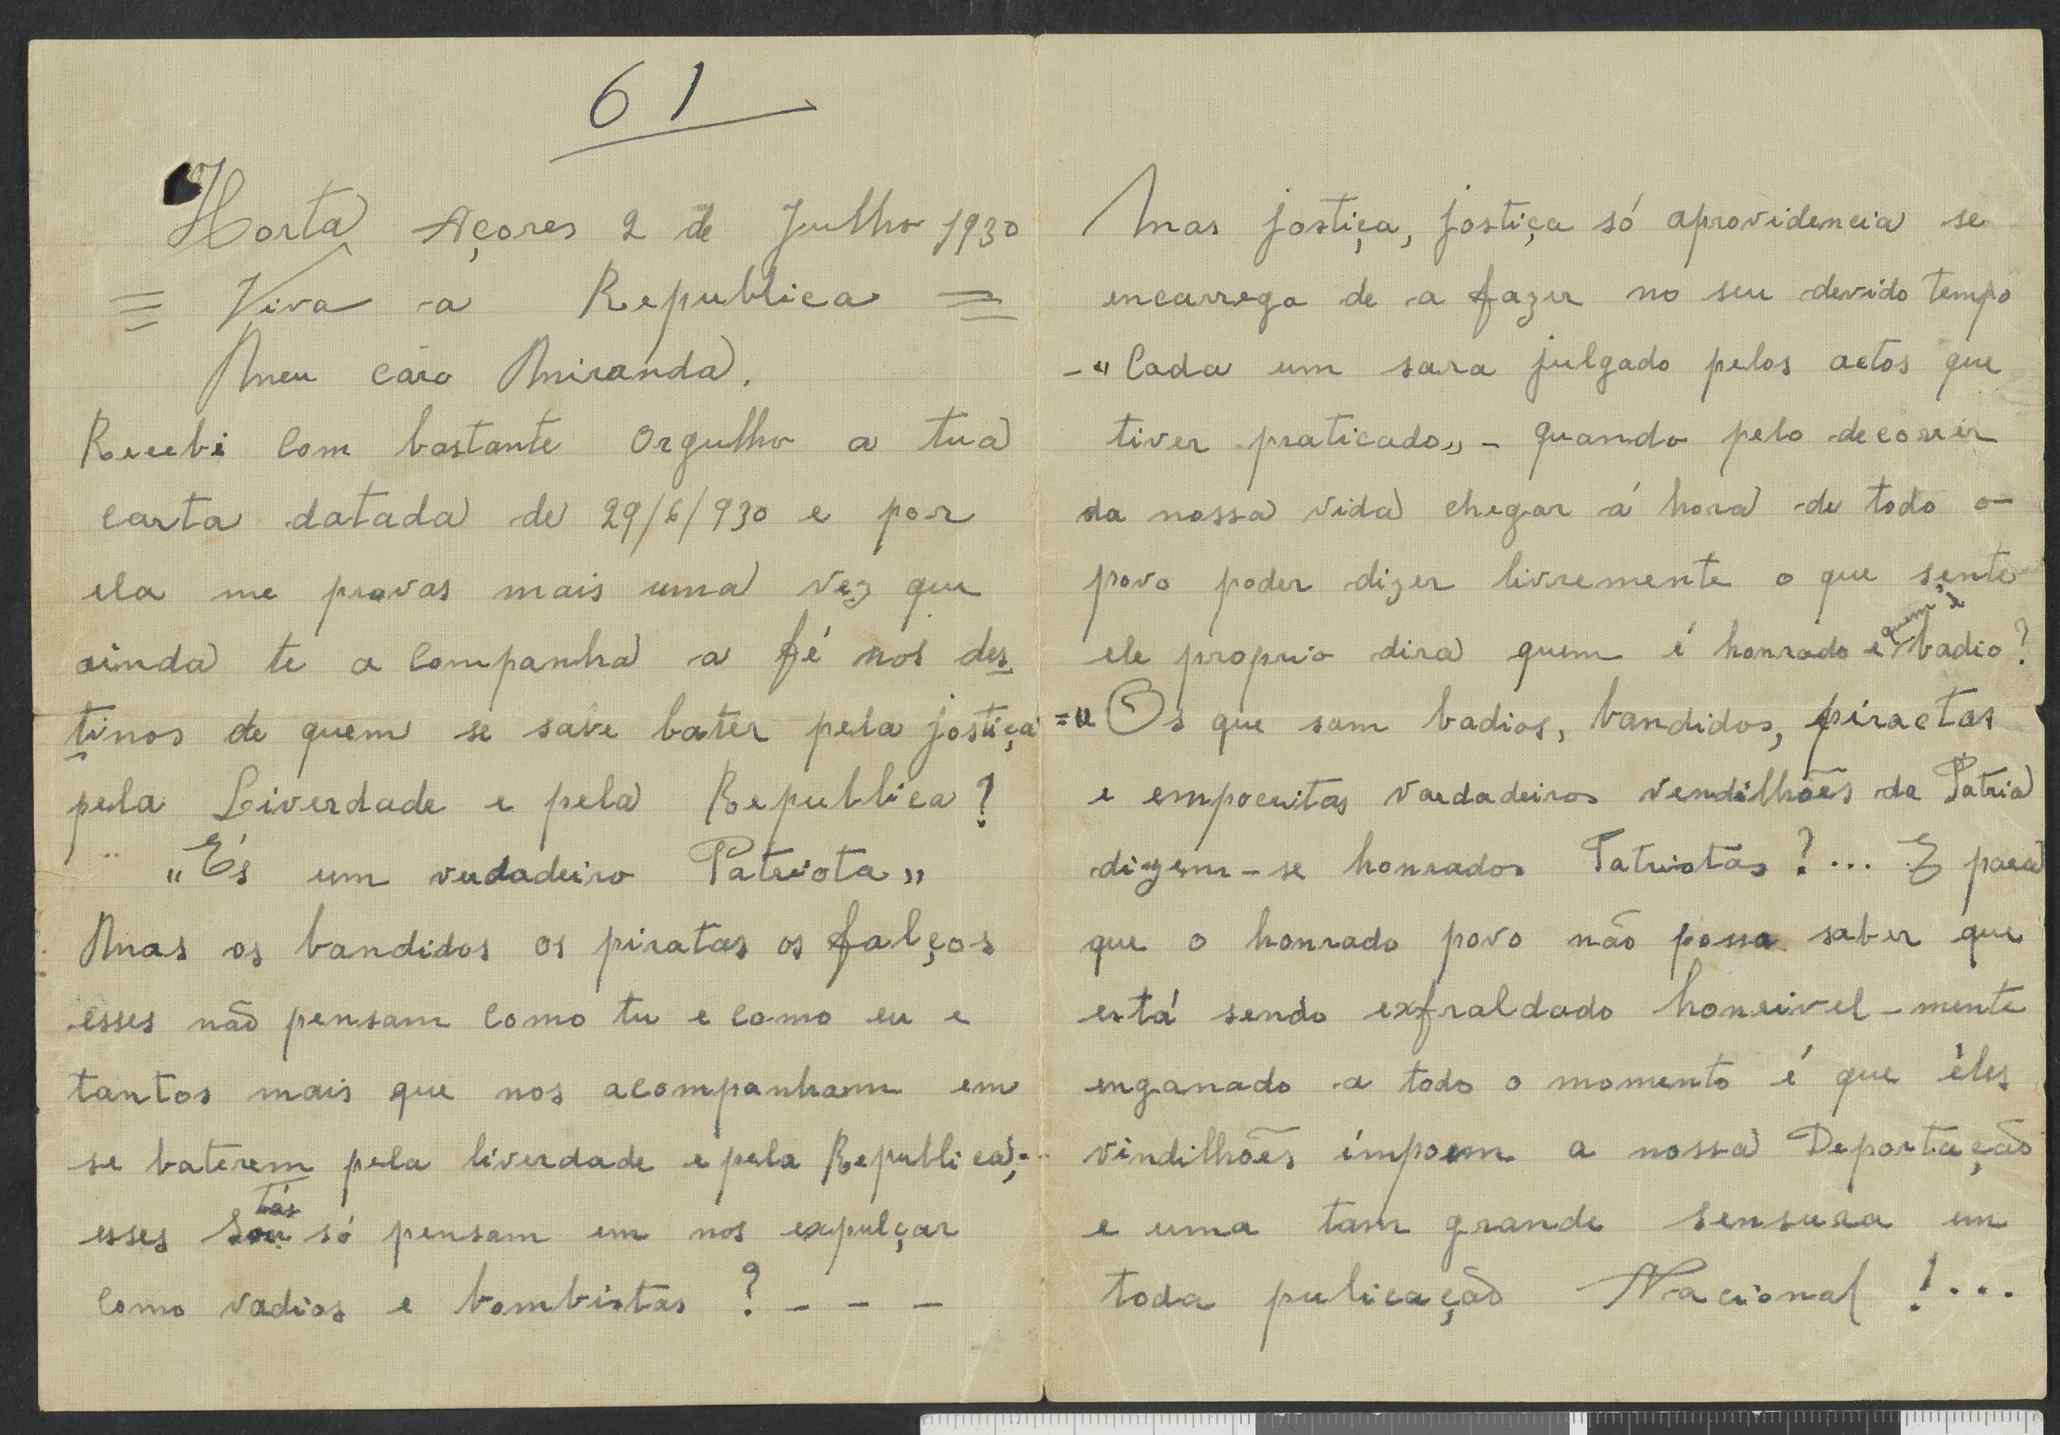 61
Horta Açores 2 de Julho 1930
= Viva a Republica =
Meu caro Miranda.
Recebi com bastante orgulho a tua
carta datada de 29/6/930 e por
ela me provas mais uma vez que
ainda te a companha a fé nos des
tinos de quem se save bater pela jostiça
pela Liverdade e pela Republica?
„És um verdadeiro Patriota„
Mas os bandidos os piratas os falços
esses não pensam como tu e como eu e
tantos mais que nos acompanham em
se baterem pela liverdade e pela Republica;
esses só pensam em nos expulçar
como vadios e bombistas ? - - -
Mas jostiça, jostiça só aprovidencia se
encarrega de a fazer no seu devido tempo
-"Cada um sara julgado pelos actos que
tiver praticado„ - quando pelo decorrer
da nossa vida chegar á hora de todo o
povo poder dizer livremente o que sente
ele proprio dira quem é honrado e quem é badio?
="Os que sam badios, bandidos, piractas
e empocritas vardadeiros vendilhões da Patria
dizem-se honrados Patriotas?... E para
que o honrado povo não possa saber que
está sendo exfraldado horrivel-mente
enganado a todo o momento é que êles
vindilhões impoem a nossa Deportação
e uma tam grande sensura em
toda publicação Nacional !...